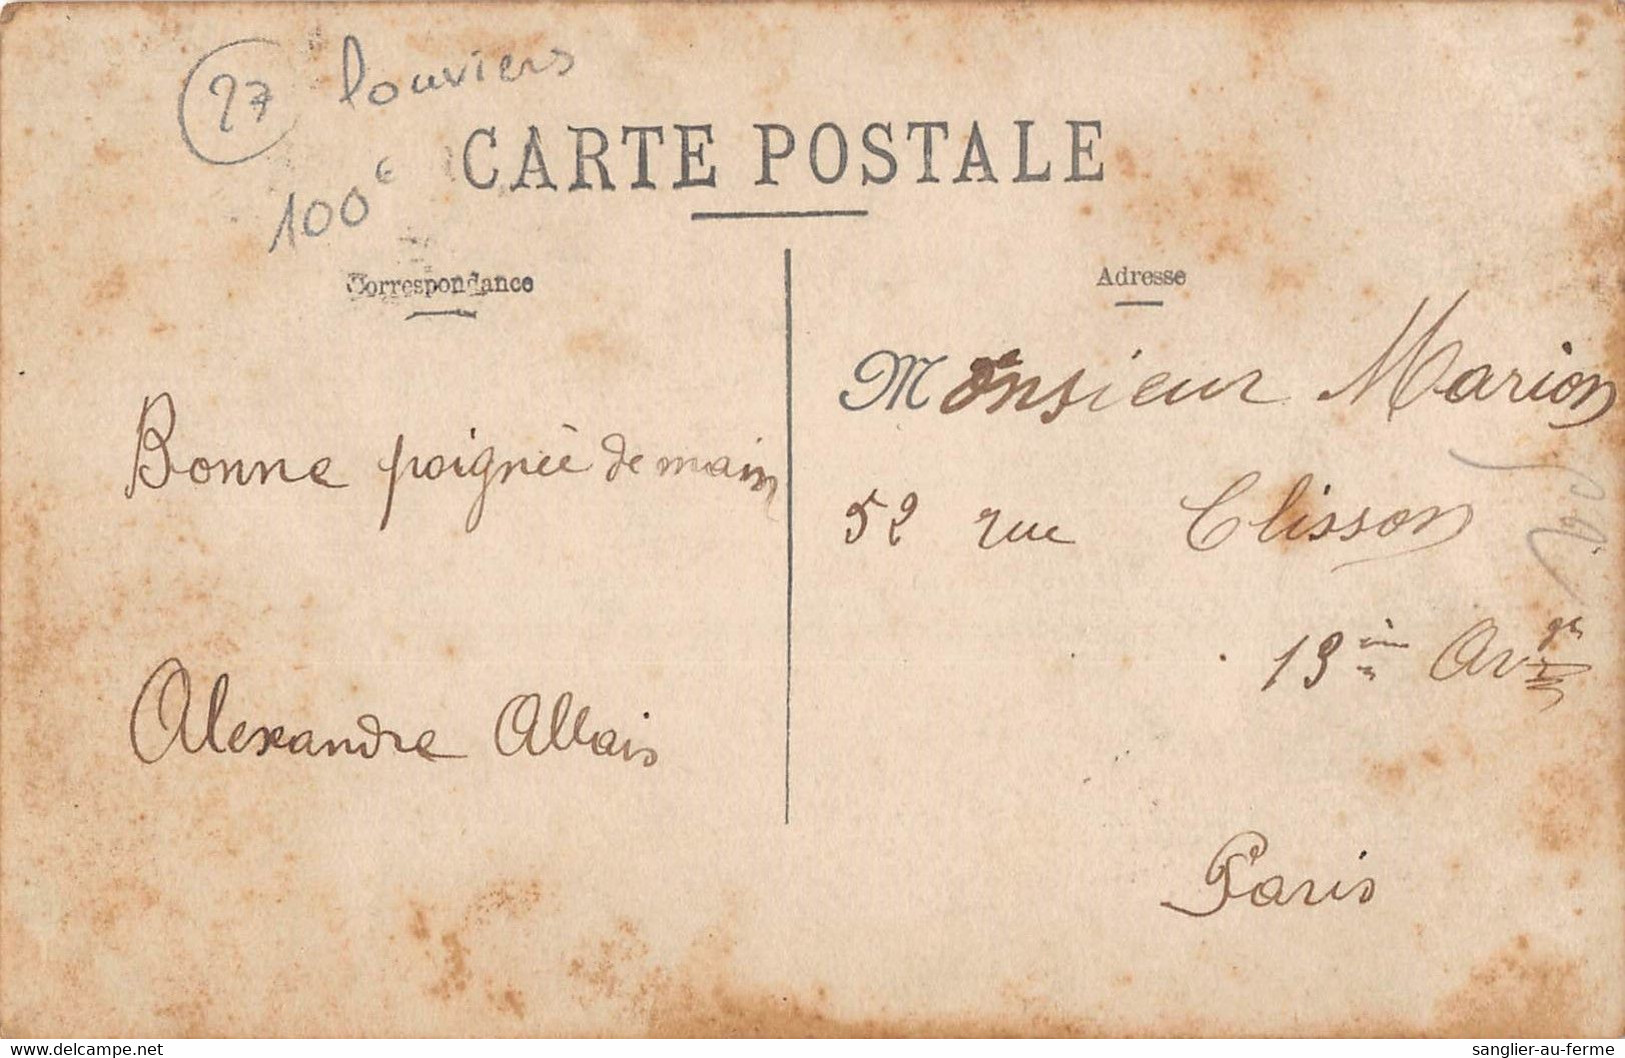 27 Louviers
100€
CARTE POSTALE
Correspondance
Adresse
Bonne poignée de main
Alexandre Allais
Monsieur Marion
52 rue Clisson
13
Paris
www.delcampe.net
sanglier-au-ferme